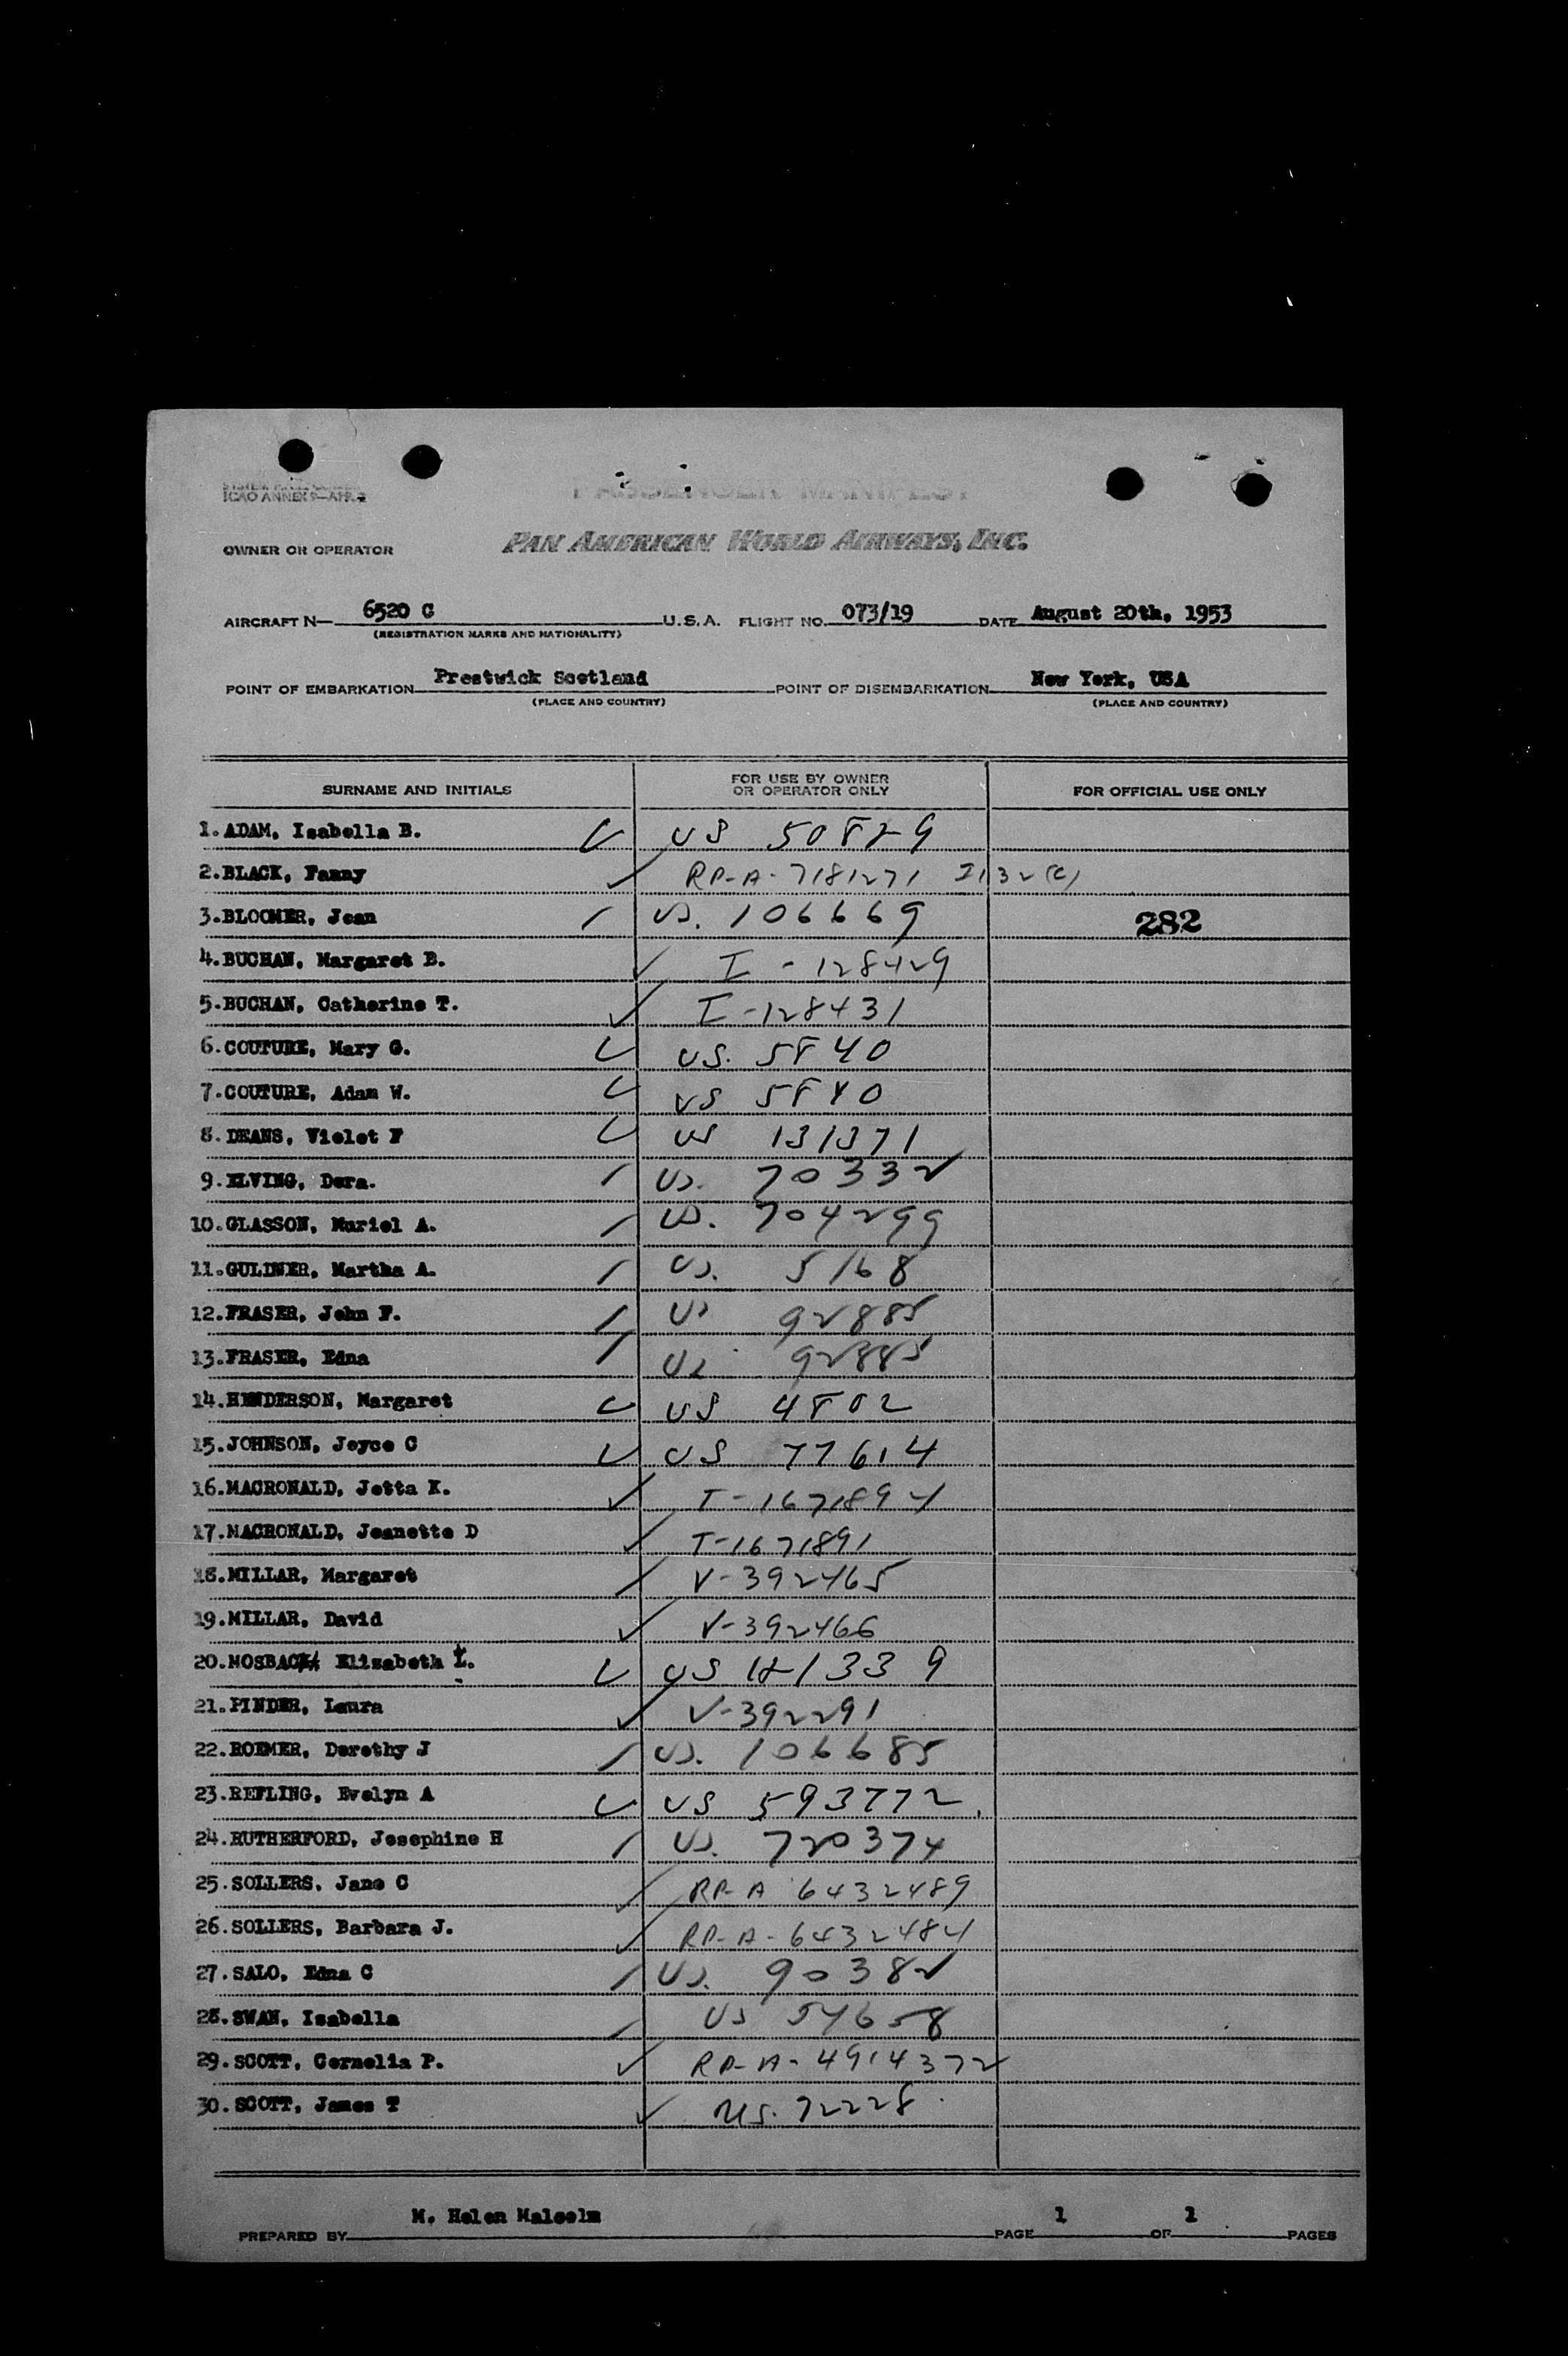 ICAO ANNEX 9—APP. 2
PASSENGER MANIFEST
OWNER OR OPERATOR PAN AMERICAN WORLD AIRWAYS, INC.
AIRCRAFT N— 6520 C U.S.A. FLIGHT NO. 073/19 DATE August 20th, 1953
(REGISTRATION MARKS AND NATIONALITY)
POINT OF EMBARKATION Prestwick Scotland POINT OF DISEMBARKATION New York, USA
(PLACE AND COUNTRY) (PLACE AND COUNTRY)
SURNAME AND INITIALS FOR USE BY OWNER OR OPERATOR ONLY FOR OFFICIAL USE ONLY
1. ADAM, Isabella B. US 50829
2. BLACK, Fanny RP-A-7181271 I132(c)
3. BLOOMER, Jean US. 106669 282
4. BUCHAN, Margaret B. I-128429
5. BUCHAN, Catherine T. I-128431
6. COUTURE, Mary G. US. 5840
7. COUTURE, Adam W. US 5840
8. DEANS, Violet F US 131371
9. ELVING, Dora. US. 70332
10. GLASSON, Muriel A. US. 704299
11. GULDNER, Martha A. US. 5168
12. FRASER, John F. US 92885
13. FRASER, Edna US 92885
14. HENDERSON, Margaret US 4802
15. JOHNSON, Joyce C US 77614
16. MACRONALD, Jetta K. T-1671894
17. MACRONALD, Jeanette D T-1671891
18. MILLAR, Margaret V-392465
19. MILLAR, David V-392466
20. MOSBACK Elizabeth L. US 1339
21. PINDER, Laura V-392291
22. ROEMER, Dorothy J US. 106685
23. REFLING, Evelyn A US 593772.
24. RUTHERFORD, Josephine H US. 720374
25. SOLLERS, Jane C RP-A 6432489
26. SOLLERS, Barbara J. RP-A-6432484
27. SALO, Edna C US. 90382
28. SWAN, Isabella US 54658
29. SCOTT, Cornelia P. RP-A-4914372
30. SCOTT, James T US. 72228
M. Helen Malcolm 1 1
PREPARED BY PAGE OF PAGES